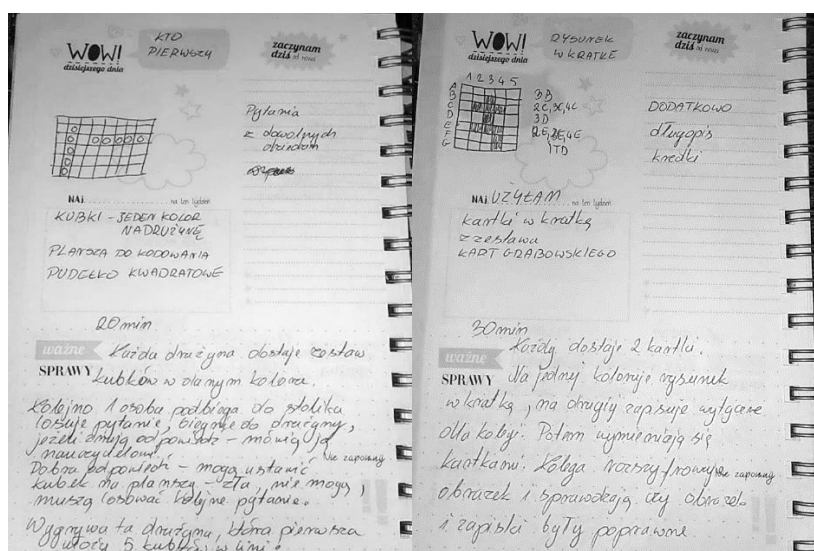 WOW!
dzisiejszego dnia
KTO
PIERWSZY
zaczynam
dziś od nowa
Pytania
z dowolnych
dziedzin
NAJ na ten tydzień
KUBKI - JEDEN KOLOR
NA DRUŻYNĘ
PLANSZA DO KODOWANIA
PUDEŁKO KWADRATOWE
20 min
ważne
SPRAWY
Każda drużyna dostaje zestaw
kubków w danym kolorze.
Kolejno 1 osoba podbiega do stolika
losuje pytanie, biegnie do drużyny,
jeżeli znają odpowiedź - mówią ją
nauczycielowi.
Nie zapomnij
Dobra odpowiedź - mogą ustawić
kubek na planszy - zła, nie mogą,
muszą losować kolejne pytanie.
Wygrywa ta drużyna, która pierwsza
ułoży 5 kubków w linii.
WOW!
dzisiejszego dnia
RYSUNEK
W KRATKĘ
zaczynam
dziś od nowa
1 2 3 4 5
A
B
C
D
E
F
G
3B
2C, 3C, 4C
3D
2E, 3E, 4E
DODATKOWO
długopis
kredki
NAJ UŻYŁAM na ten tydzień
kartki w kratkę
z zestawu
KART GRABOWSKIEGO
30 min
ważne
SPRAWY
Każdy dostaje 2 kartki.
Na jednej koloruje rysunek
w kratkę, na drugiej zapisuje wytyczne
dla kolegi. Potem wymieniają się
kartkami. Kolega rozszyfrowuje
Nie zapomnij
obrazek i sprawdzają czy obrazek
i zapiski były poprawne